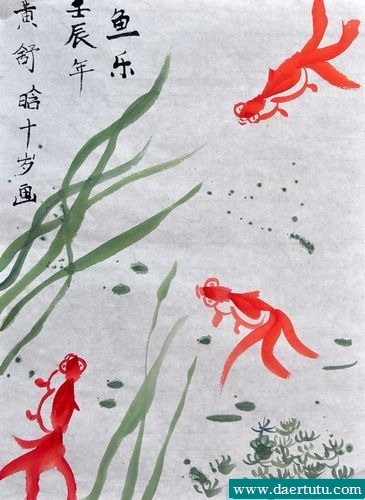 鱼乐
壬辰年
黄舒晗十岁画
www.daertutu.com